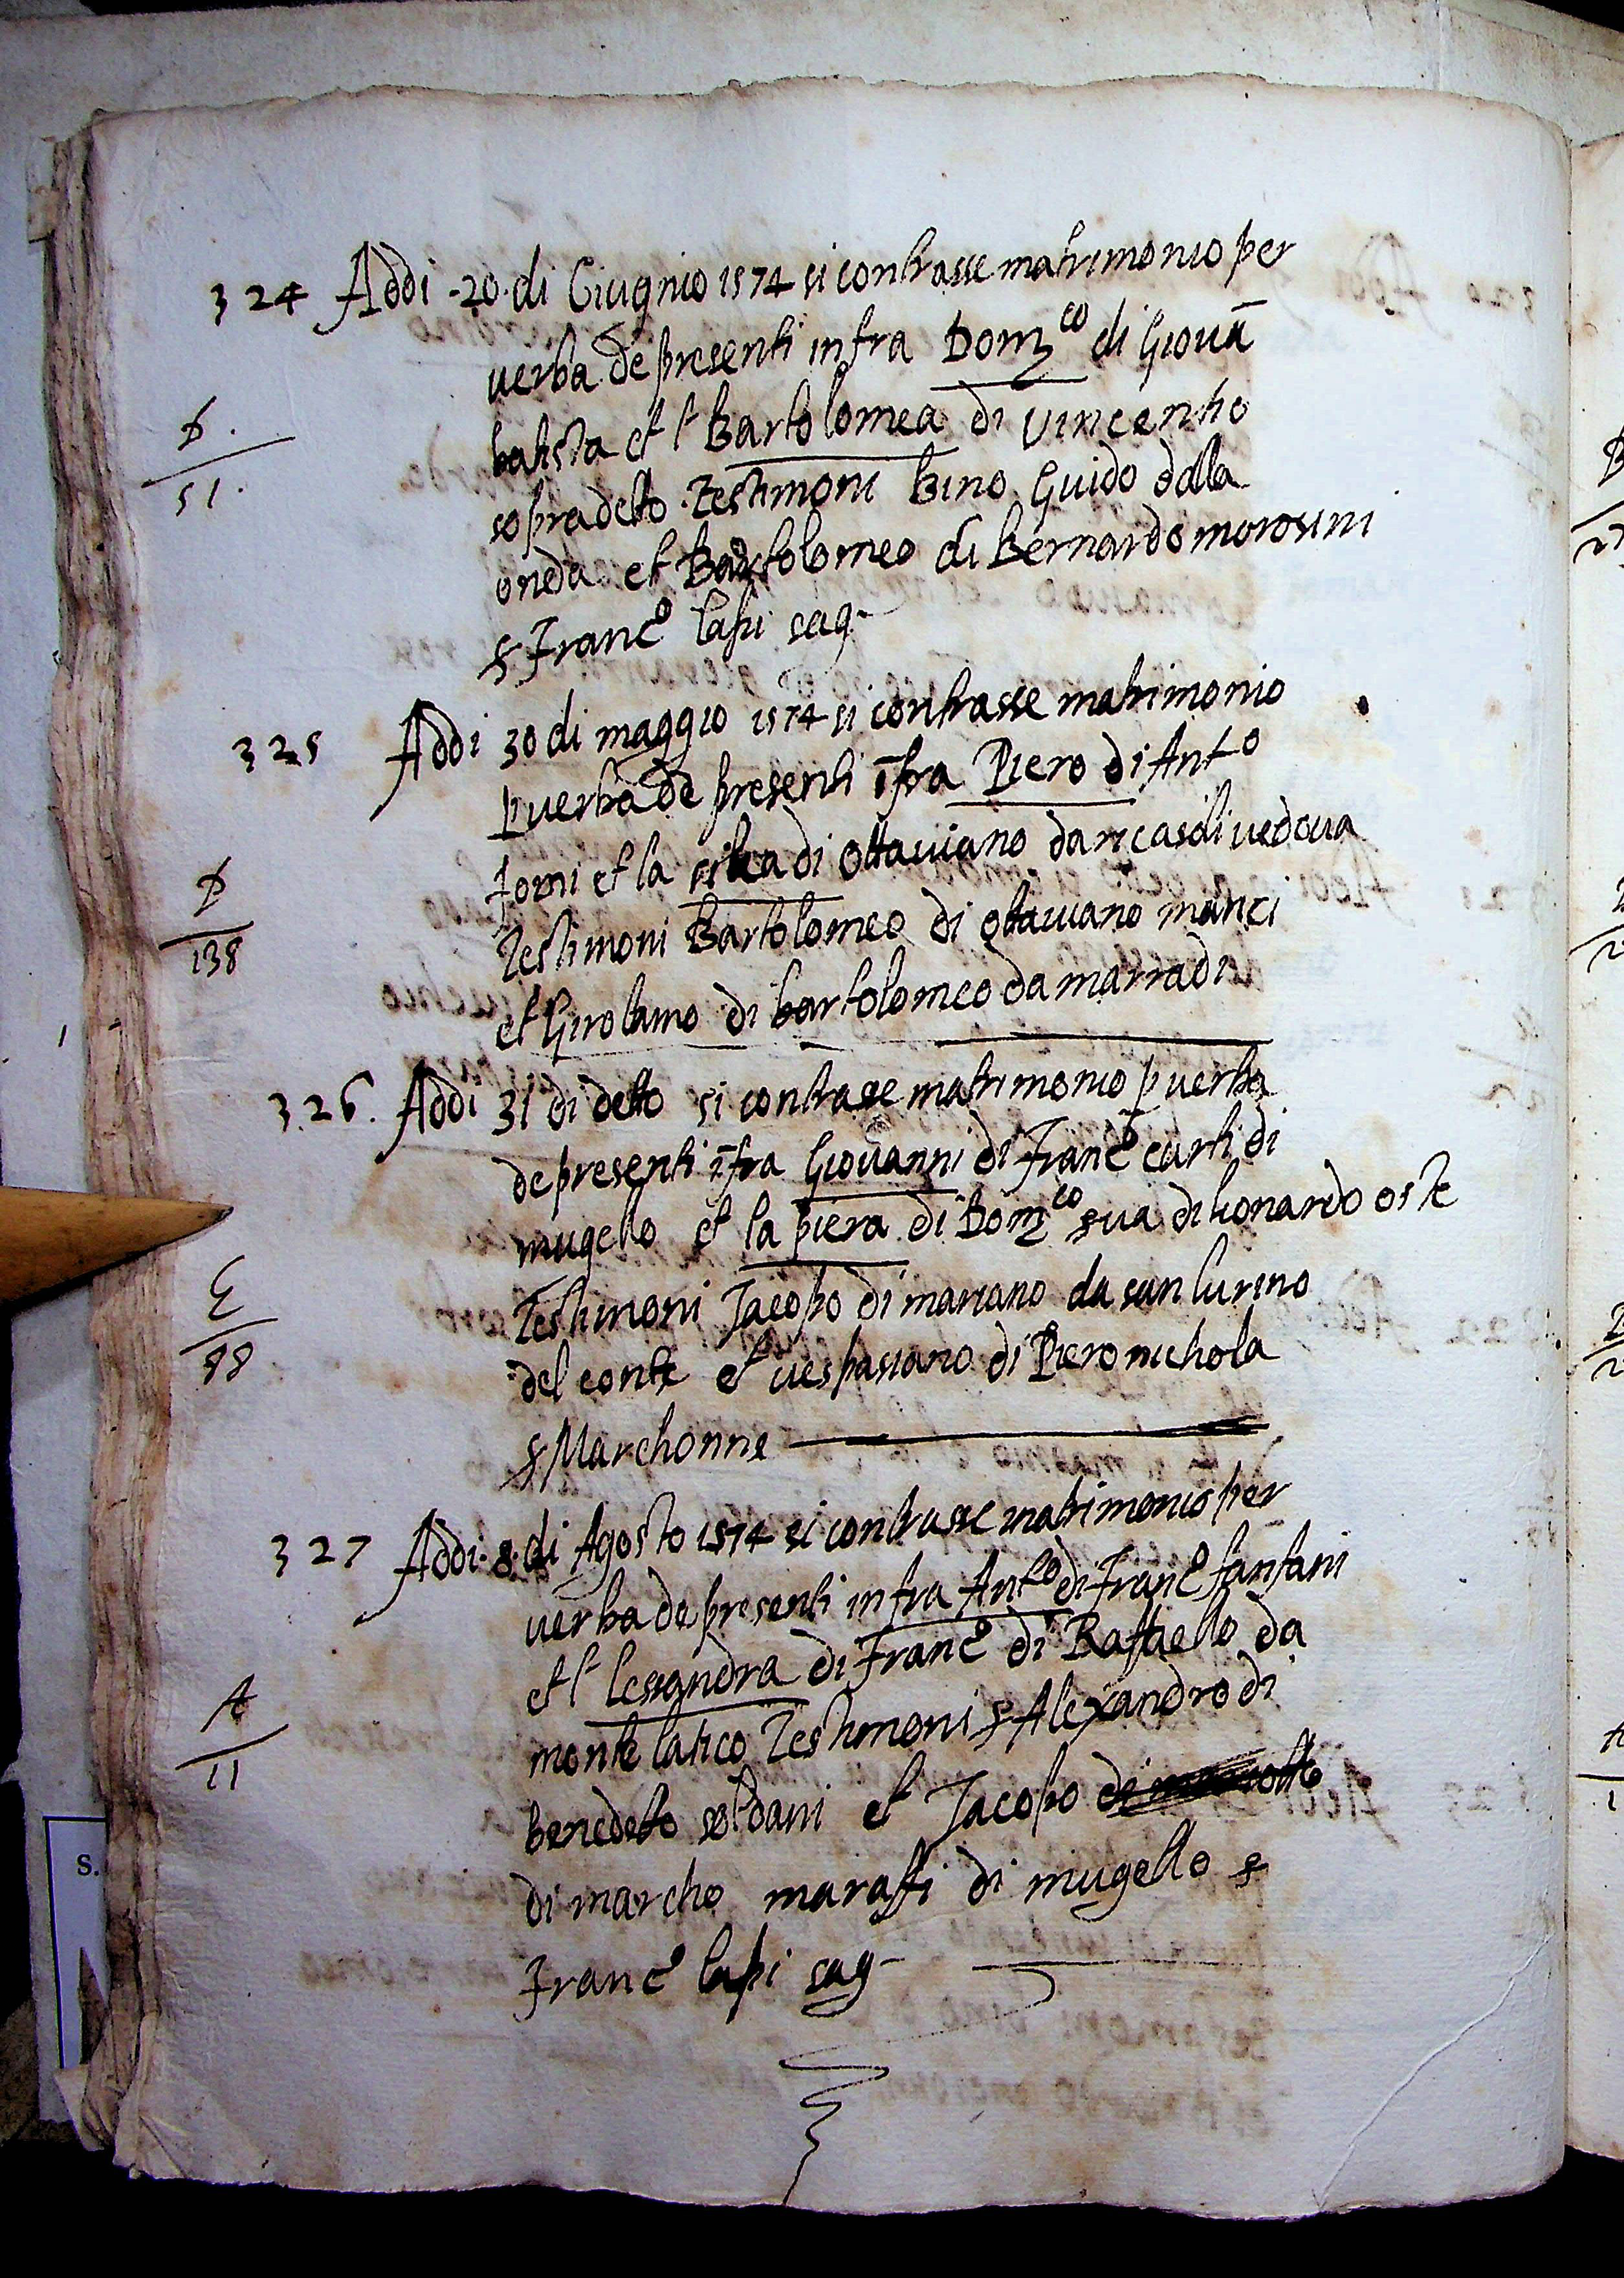 324 Addi · 20 · di Giugnio 1574 si contrasse matrimonio per
uerba de presenti infra Domco di Giouā
batista et l Bartolomea di Vincentio
sopradetto · Testimoni Bino Guido dalla
onda et Bartolomeo di Bernardo morosini
Franco lapi sag
D
51
325 Addi 30 di maggio 1574 si contrasse matrimonio
p uerba de presenti īfra Piero di Anto
forni et la di ottauiano da ricasoli uedoua
Testimoni Bartolomeo di ottauiano manci
et Girolamo di bartolomeo da marradi
D
138
326. Addi 31 di detto si contrasse matrimonio p uerba
de presenti īfra Giouanni di Franco curti di
mugello et la piera di Domco sua di lionardo oste
Testimoni Jacopo di mariano da san
del conte et uespasiano di Piero nichola
Marchonne
E
98
327 Addi · 8 · di Agosto 1574 si contrasse matrimonio per
uerba de presenti infra Anto di Franco fanfani
et l lessandra di Franco di Raffaello da
monte latico Testimoni Alexandro di
benedetto soldani et Jacopo
di marcho maraffi di mugello
Franco lapi sag
A
11
S.